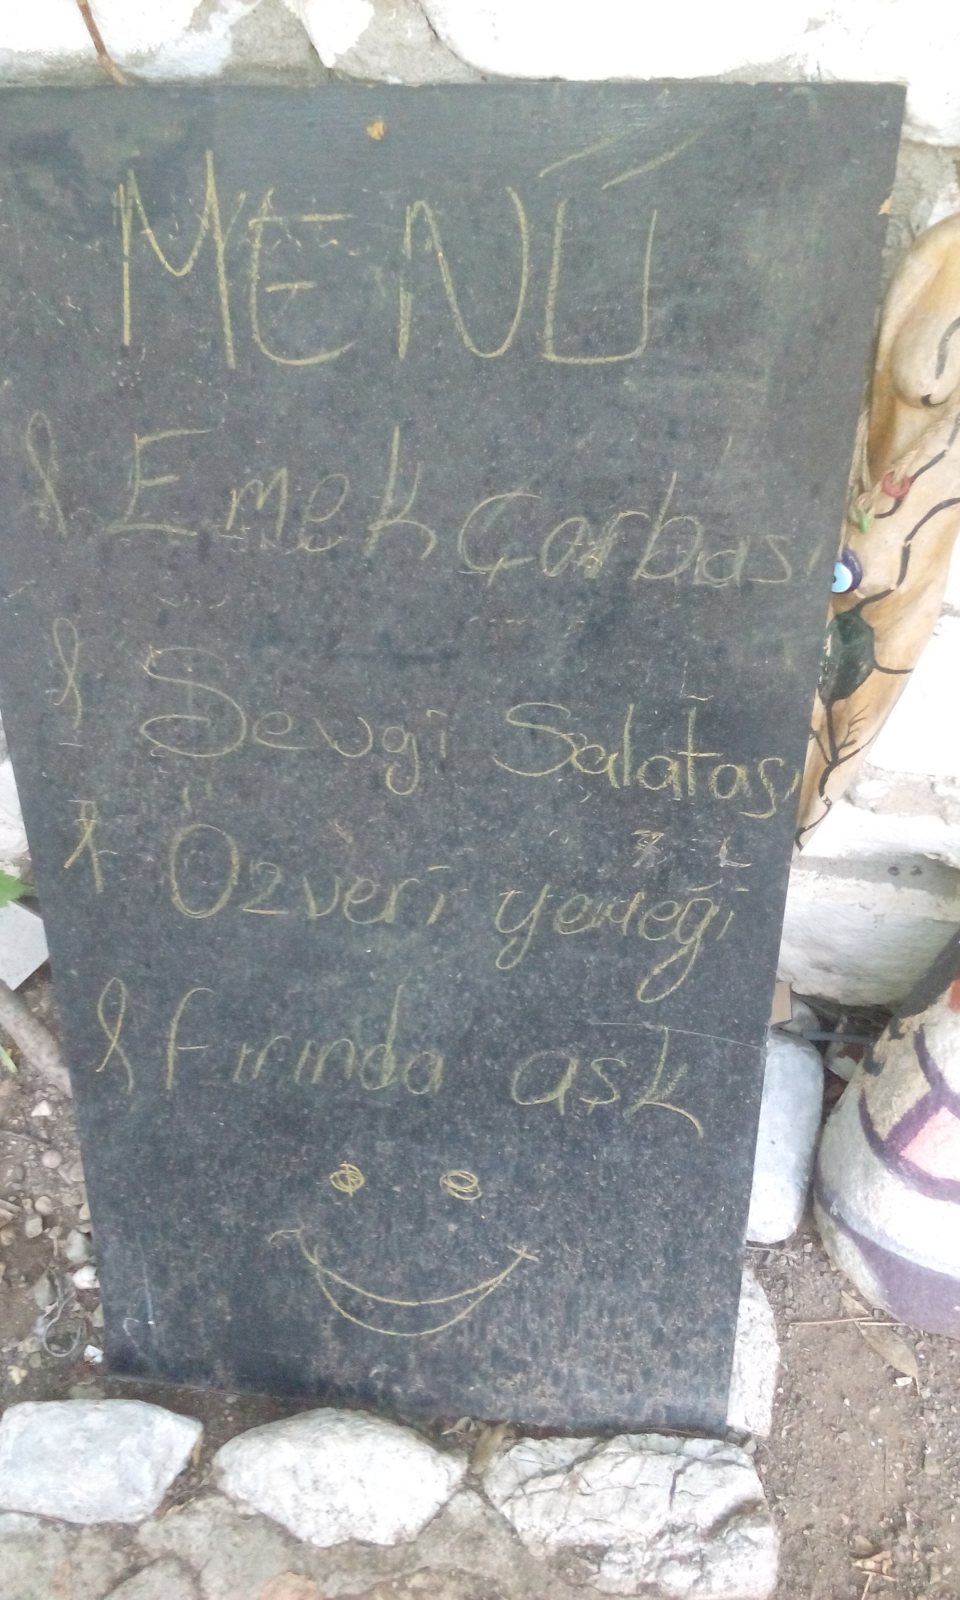 MENÜ
Emek Çorbası
Sevgi Salatası
Özveri yemeği
fırında aşk